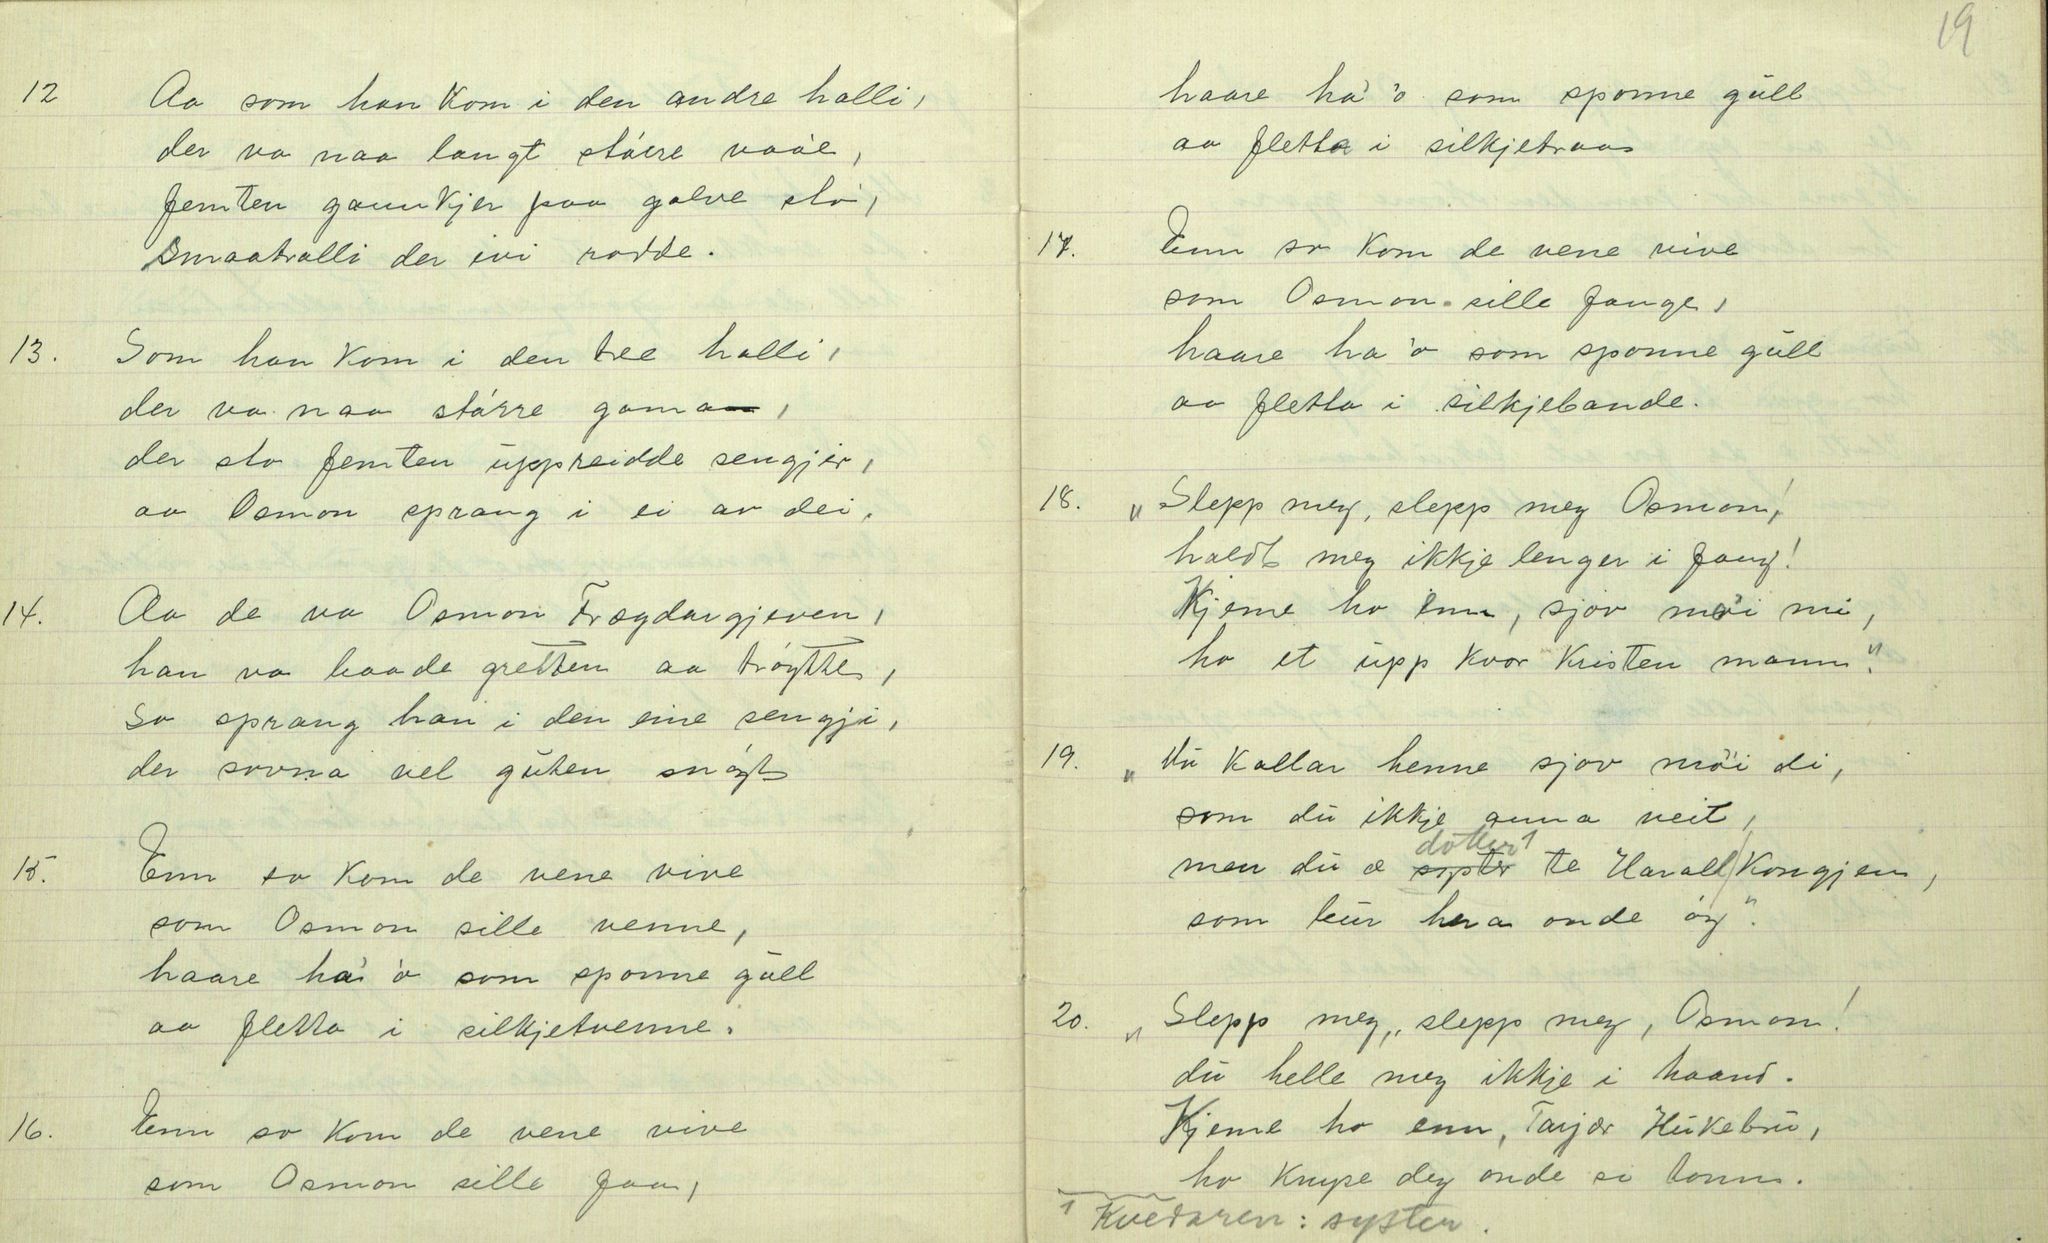 12 Aa som han kom i den andre halli,
der va naa langt stórre vaae,
femten gaunkjer paa golve sto,
smaatralli der ivi rodde.
13. Som han kom i den tree halli,
der va naa stórre gama,
der sto femten üppreidde sengjir,
aa Osmon sprang i ei av dei.
14. Aa de va Osmon Frægdargjeven,
han va baade gretten aa tróytte,
so sprang han i den eine sengji,
der sovna vel güten snógt
15. Enn so kom de vene vive
som Osmon sille venne,
haare ha' 'o som sponne güll
aa fletta i silkjetvenne.
16. Enn so kom de vene vive
som Osmon sille faa,
19
haare ha' 'o som sponne güll
aa fletta i silkjetraa
17. Enn so kom de vene vive
som Osmon sille fange,
haare ha 'o som sponne güll
aa fletta i silkjebande.
18. "Slepp meg, slepp meg Osmon!
haldt meg ikkje lenger i fang!
Kjeme ho enn, sjov mói mi,
ho et üpp kvor kristen mann".
19. "Dü kallar henne sjov mói di,
som dü ikkje anna veit,
men dü æ syster dótter 1 te Harall kongjen,
som bür hera onde óy".
20. "Slepp meg, slepp meg, Osmon!
dü helle meg ikkje i haand.
Kjeme ho enn, Tarjær Hükebrü,
ho knype deg onde si tonn.
1 Kvedaren: syster.